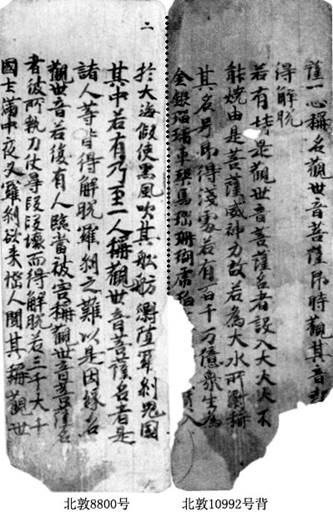 薩一心稱名觀世音菩薩即時觀其音
得解脫
若有持是觀世音菩薩名者設入大火火不
能燒由是菩薩威神力故若為大水所漂稱
其名号即得淺處若有百千万億衆生為
金銀瑠璃車𤦲馬瑙珊瑚虎珀 入
二
於大海假使黑風吹其舩舫漂墮羅刹鬼國
其中若有乃至一人稱觀世音菩薩名者是
諸人等皆得解脫羅刹之難以是因緣名
觀世音若復有人臨當被害稱觀世音菩薩名
者彼所執刀仗尋段段壞而得解脫若三千大千
國土滿中夜叉羅刹欲来惱人聞其稱觀世
北敦8800号
北敦10992号背